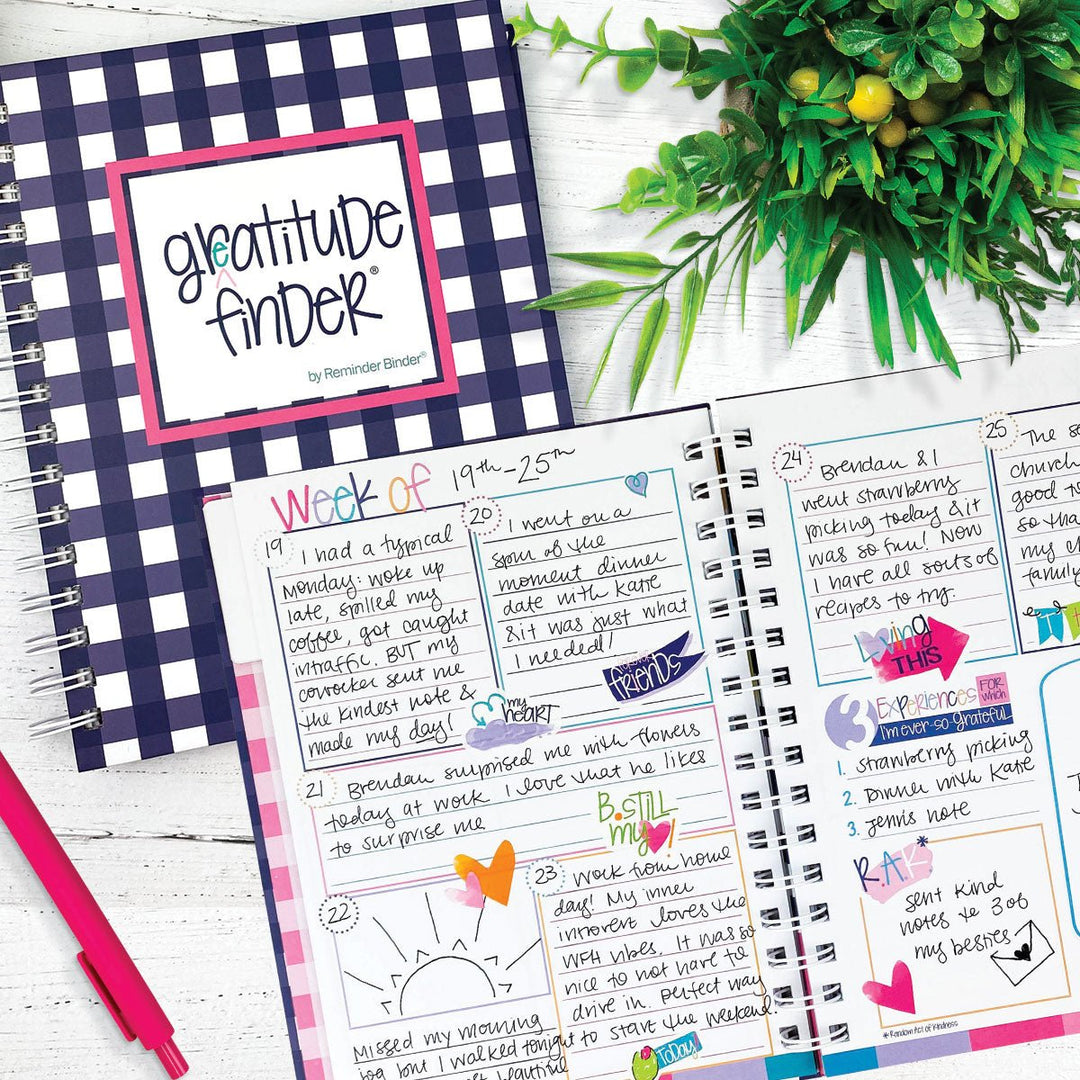 greatitude
finder®
by Reminder Binder®
Week of 19th-25th
19
I had a typical
Monday: woke up
late, spilled my
coffee, got caught
intraffic. BUT my
coworker sent me
the kindest note &
made my day!
my
heart
20
I went on a
spur of the
moment dinner
date with Katie
& it was just what
I needed!
friends
21
Brendan surprised me with flowers
today at work I love that he likes
to surprise me
B.still
my !
22
Missed my morning
jog but I walked tonight
beautiful
23
Work from home
day! My inner
introvert loves the
WFH vibes. It was so
nice to not have to
drive in. Perfect way
to start the weekend!
Today
24
Brendan & I
went strawberry
picking today & it
was so fun! Now
I have all sorts of
recipes to try.
Loving
THIS
25
The
church
good
so tha
my
family
3 Experiences FOR which
I'm ever-so-grateful
1. strawberry picking
2. Dinner with Katie
3. Jenni's note
R.A.K*
sent kind
notes to 3 of
my besties
*Random Act of Kindness